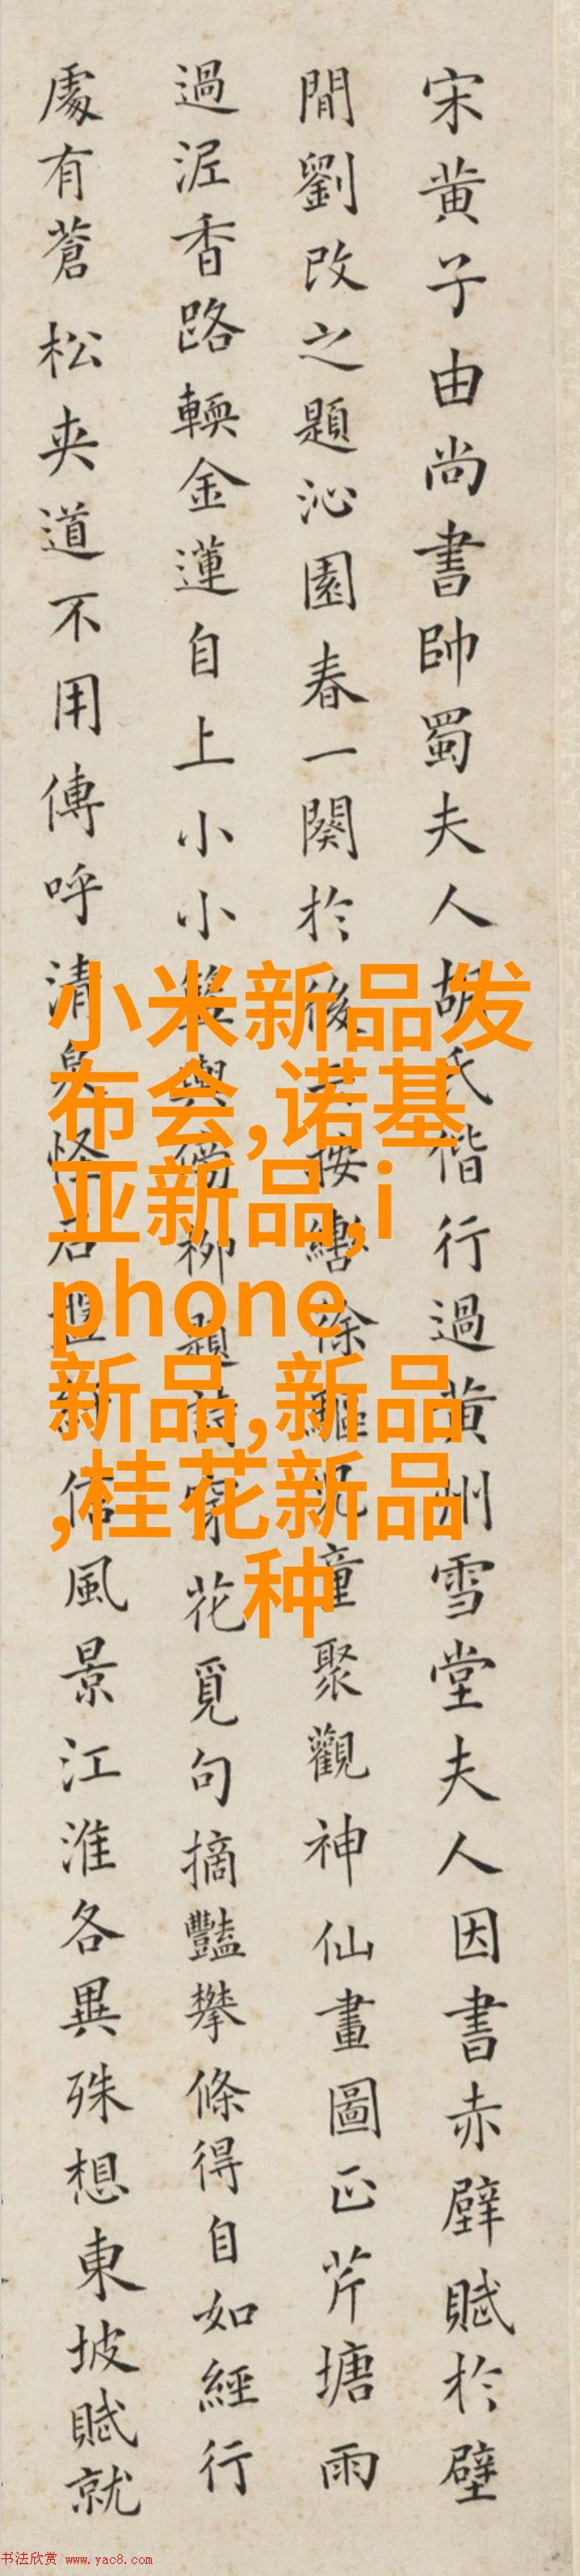 宋黄子由尚書帥蜀夫人胡氏偕行過黄州雪堂夫人因書赤壁賦於壁
間劉改之題沁園春一闋於後按轡徐驅兒童聚觀神仙畫圖正芹塘雨
過泥香路輭金蓮自上小小籃輿傍柳題詩穿花覓句摘豔攀條得自如經行
處有蒼松夾道不用傳呼清泉怪石盤信風景江淮各異殊想東坡賦就
小米新品发
布会,诺基
亚新品,i
phone
新品,新品
,桂花新品
种
书法欣赏 www.yac8.com